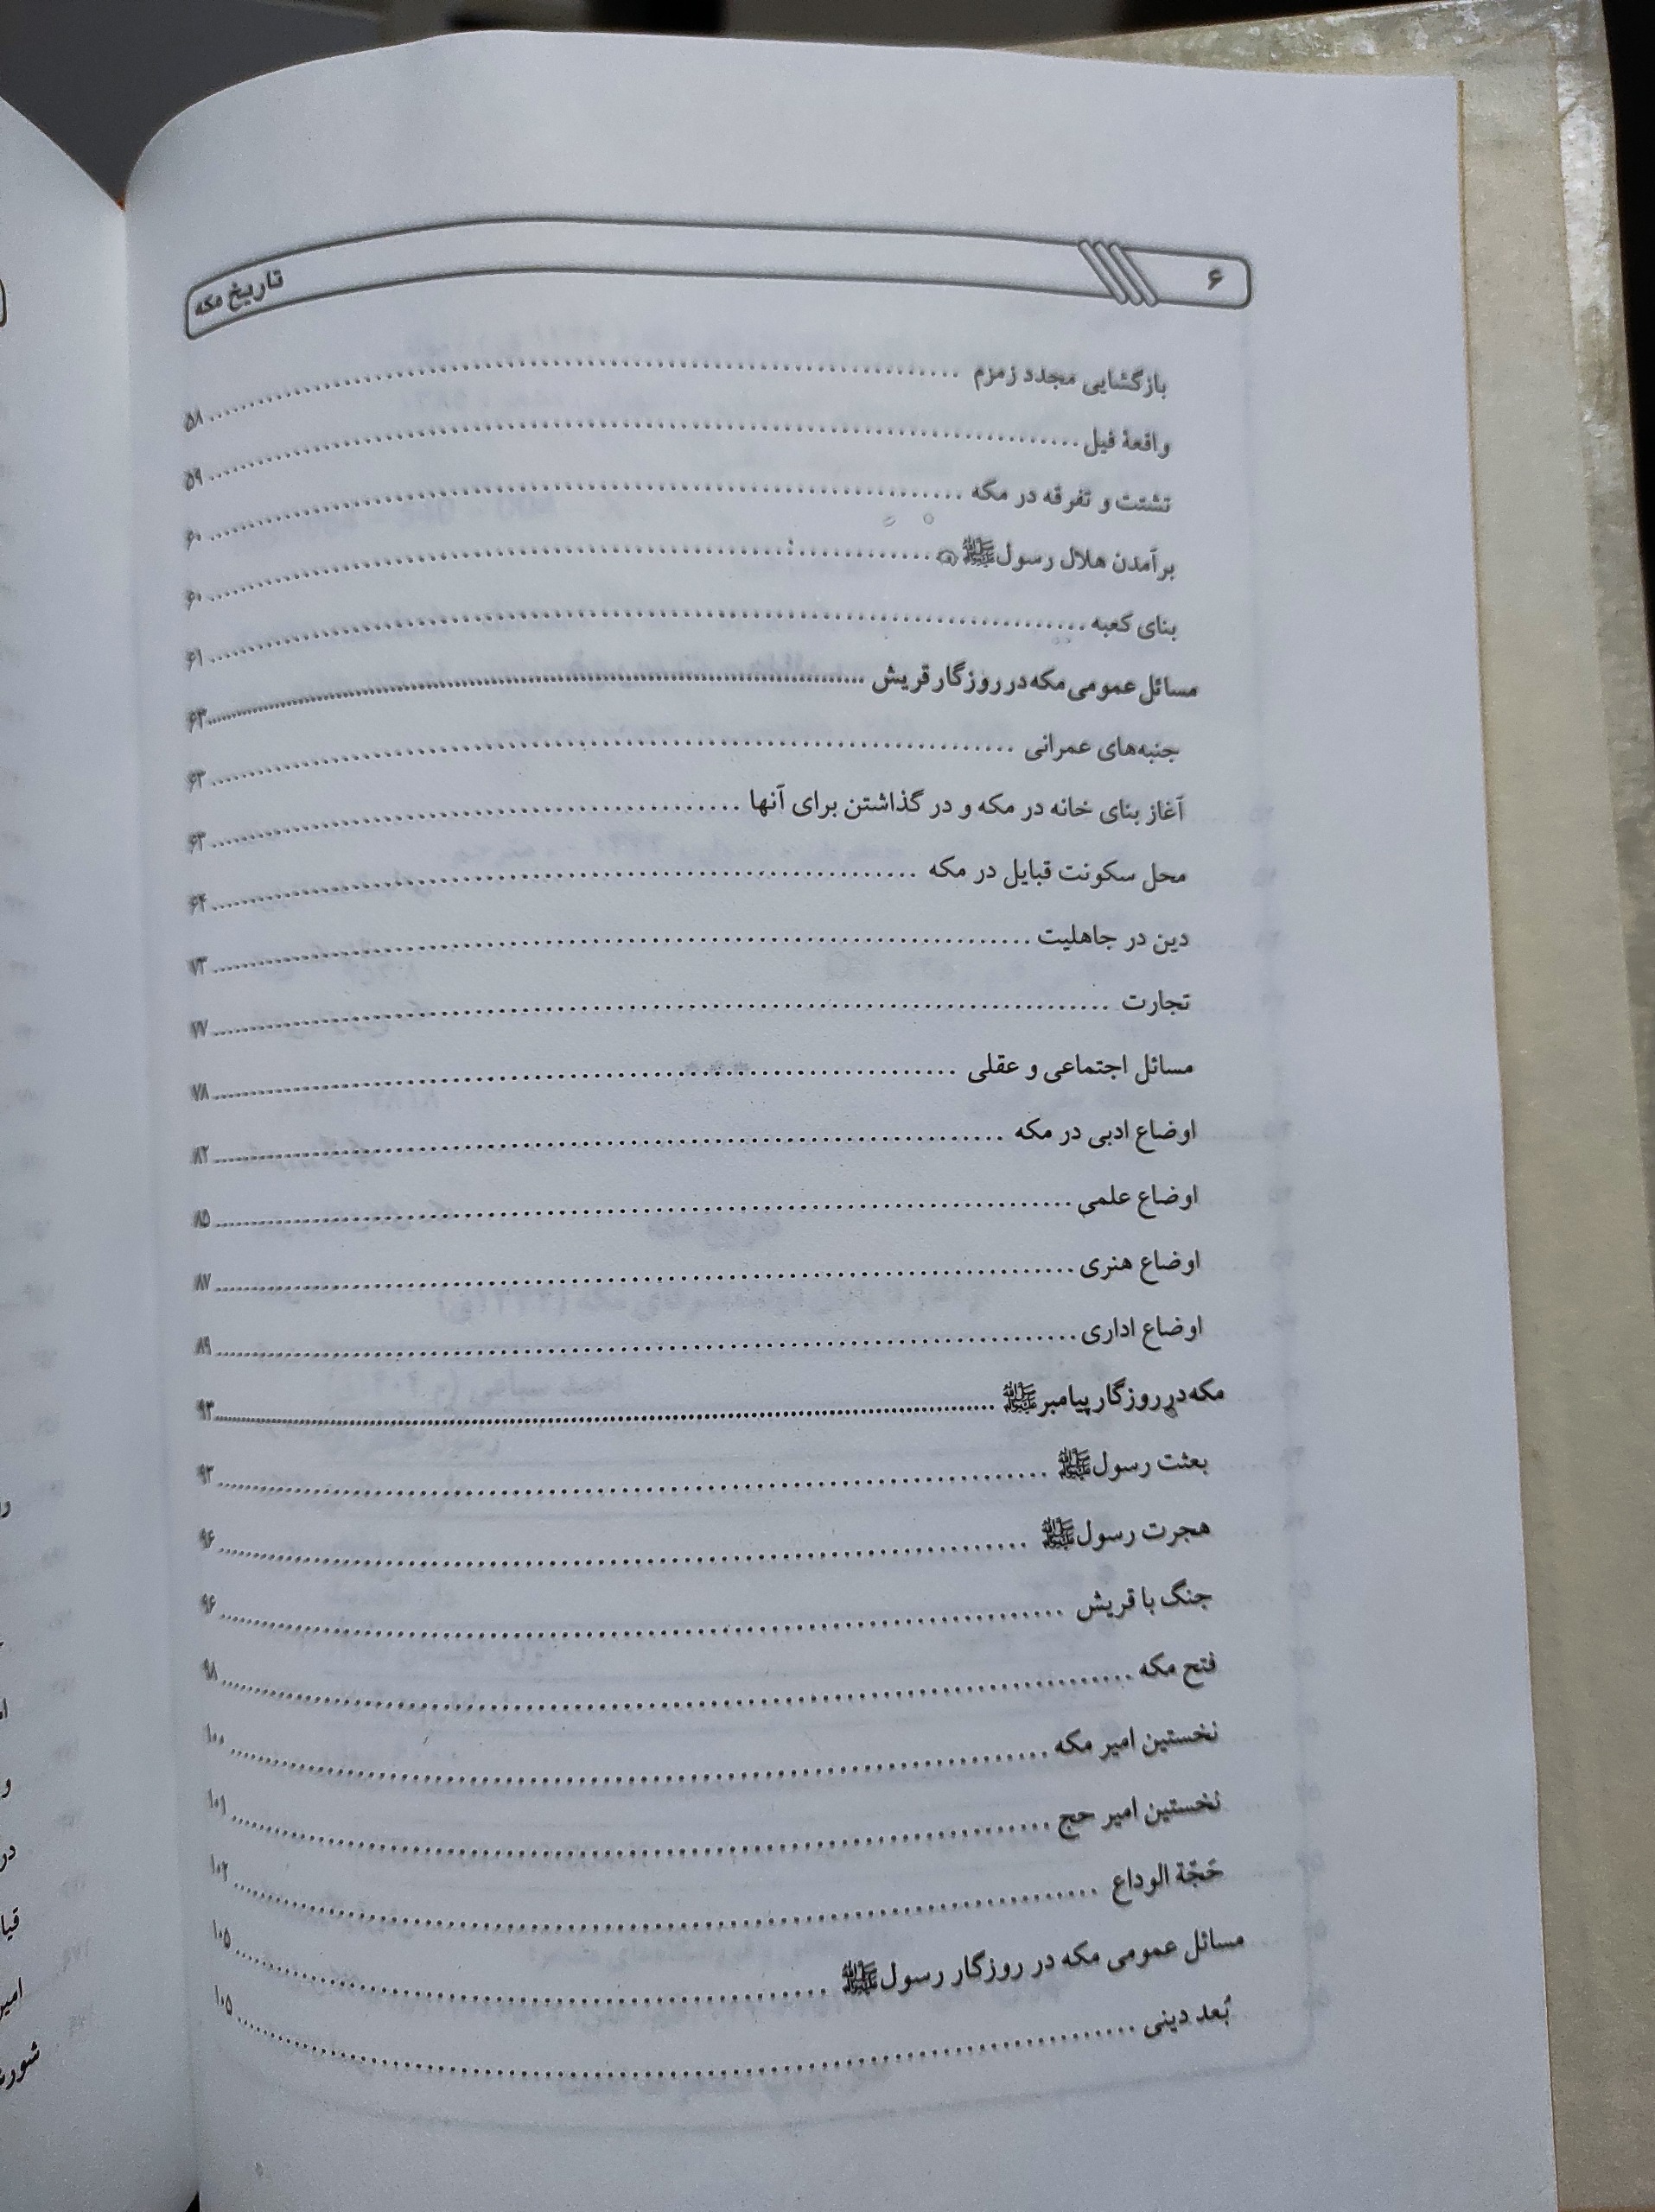 ۶ تاریخ مکه
بازگشایی مجدد زمزم ........ ۵۸
واقعۀ فیل ........ ۵۹
تشتت و تفرقه در مکه ........ ۶۰
برآمدن هلال رسول ﷺ ........ ۶۰
بنای کعبه ........ ۶۱
مسائل عمومی مکه در روزگار قریش ........ ۶۳
جنبه‌های عمرانی ........ ۶۳
آغاز بنای خانه در مکه و در گذاشتن برای آنها ........ ۶۳
محل سکونت قبایل در مکه ........ ۶۴
دین در جاهلیت ........ ۷۳
تجارت ........ ۷۷
مسائل اجتماعی و عقلی ........ ۷۸
اوضاع ادبی در مکه ........ ۸۲
اوضاع علمی ........ ۸۵
اوضاع هنری ........ ۸۷
اوضاع اداری ........ ۸۹
مکه در روزگار پیامبر ﷺ ........ ۹۳
بعثت رسول ﷺ ........ ۹۳
هجرت رسول ﷺ ........ ۹۶
جنگ با قریش ........ ۹۶
فتح مکه ........ ۹۸
نخستین امیر مکه ........ ۱۰۰
نخستین امیر حج ........ ۱۰۱
حَجّة الوداع ........ ۱۰۲
مسائل عمومی مکه در روزگار رسول ﷺ ........ ۱۰۵
بُعد دینی ........ ۱۰۵